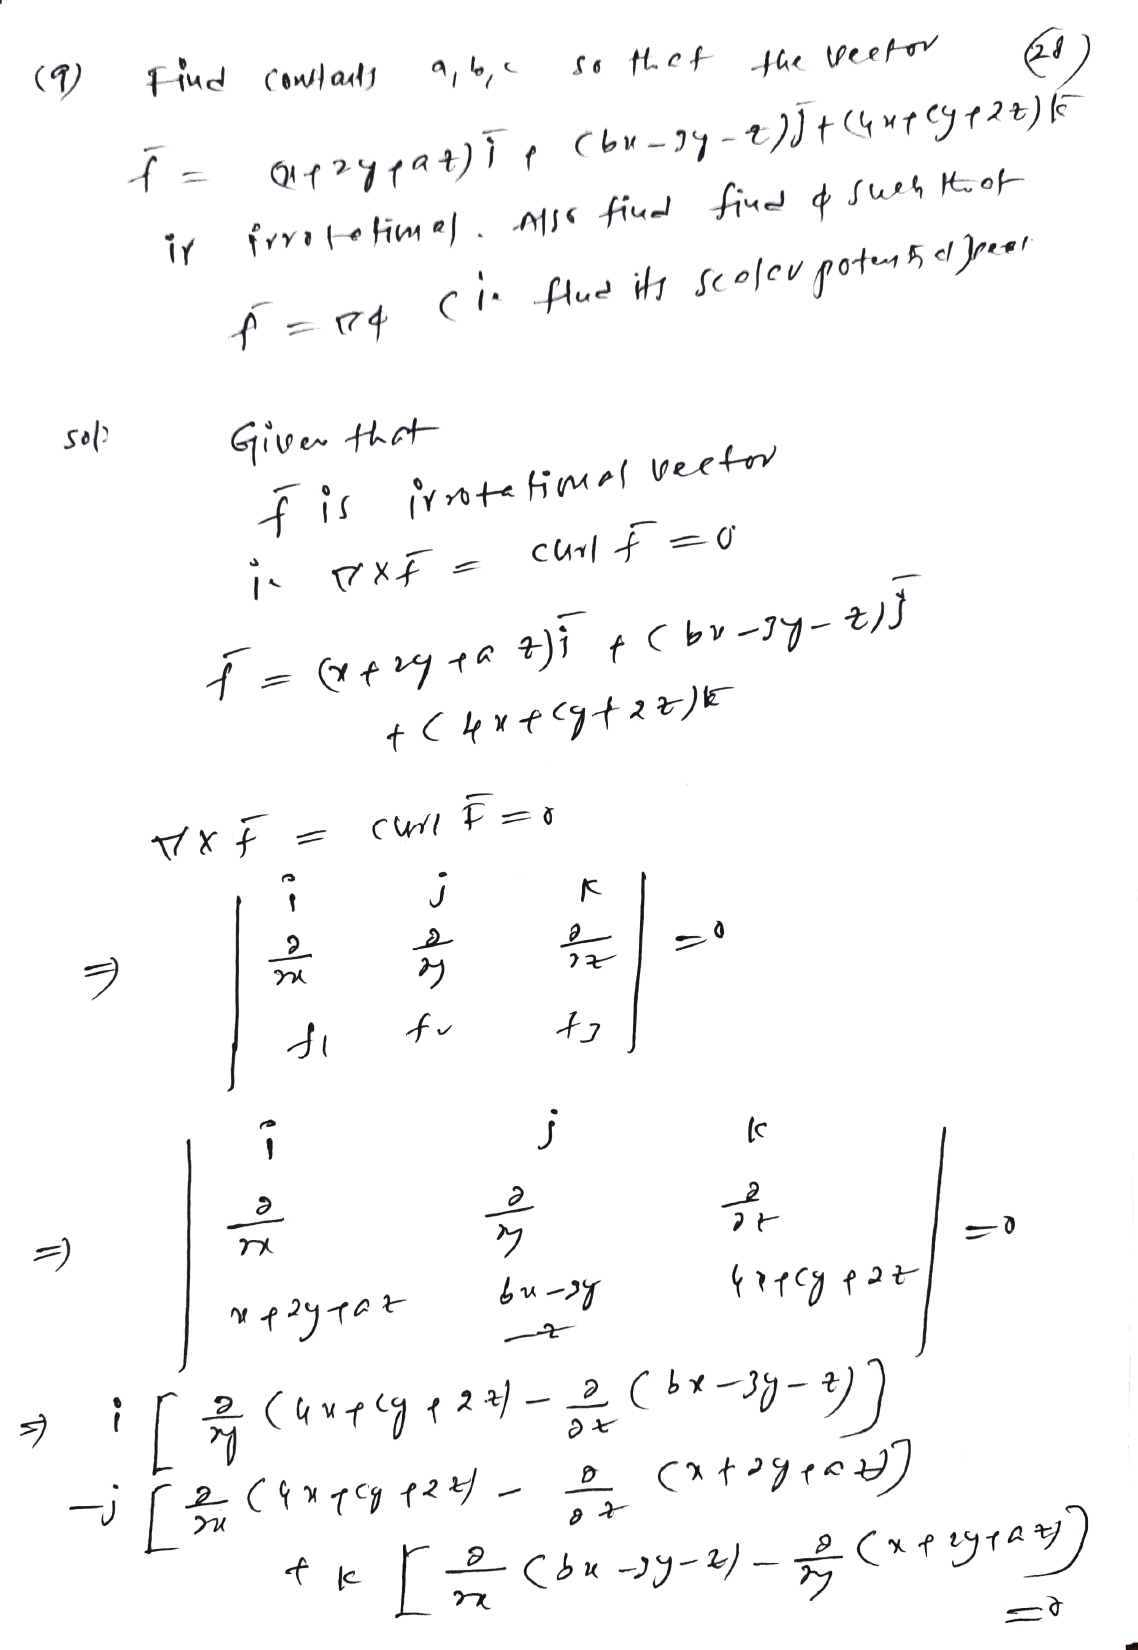 (9) Find constants a, b, c so that the vector (28)
f̄ = (x+2y+az) ī + (bx-3y-z) j̄ + (4x+cy+2z) k̄
is irrotational. Also find find φ such that
f̄ = ∇φ (ie find its scalar potential
sol: Given that
f̄ is irrotational vector
ie ∇×f̄ = curl f̄ = 0
f̄ = (x+2y+az) ī + (bx-3y-z) j̄
+ (4x+cy+2z) k̄
∇×f̄ = curl F̄ = 0
i j k
⇒ ∂/∂x ∂/∂y ∂/∂z = 0
f1 f2 f3
i j k
⇒ ∂/∂x ∂/∂y ∂/∂z = 0
x+2y+az bx-3y 4x+cy+2z
-z
⇒ i [ ∂/∂y (4x+cy+2z) - ∂/∂z (bx-3y-z) ]
-j [ ∂/∂x (4x+cy+2z) - ∂/∂z (x+2y+az) ]
+ k [ ∂/∂x (bx-3y-z) - ∂/∂y (x+2y+az) ]
= 0